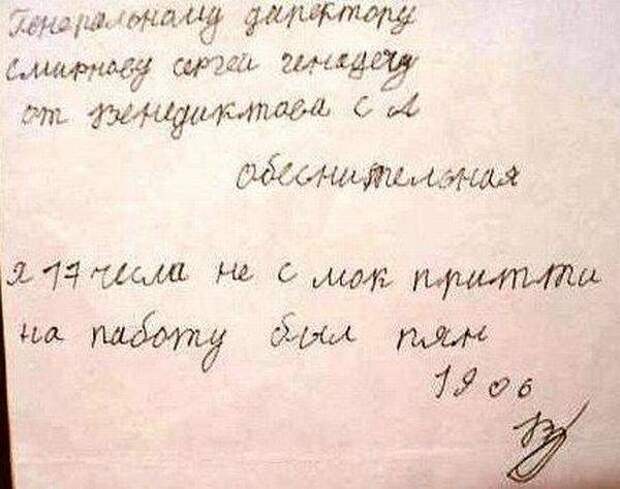 Генеральному директору
смирнову сергей генадечу
от Венедиктова С Л
обеснительная
я 17 чесла не с мок притти
на работу был пян
19 06